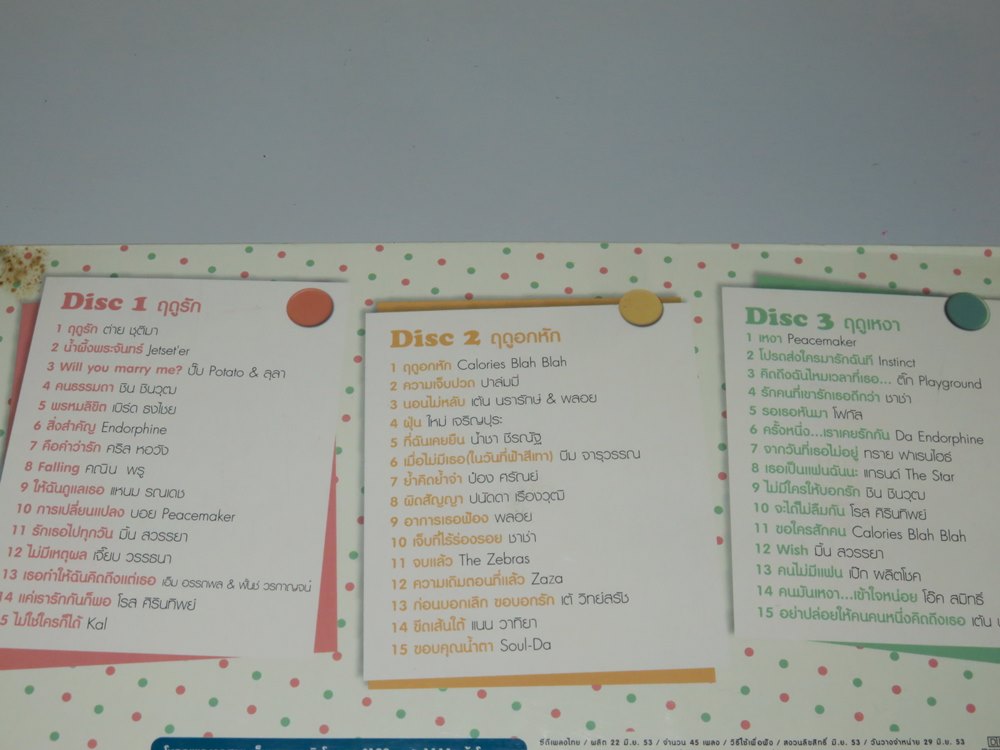 Disc 1 ฤดูรัก
1 ฤดูรัก ต่าย ชุติมา
2 น้ำผึ้งพระจันทร์ Jetset'er
3 Will you marry me? ปั๊บ Potato & ลุลา
4 คนธรรมดา ชิน ชินวุฒ
5 พรหมลิขิต เบิร์ด ธงไชย
6 สิ่งสำคัญ Endorphine
7 คือคำว่ารัก คริส หอวัง
8 Falling คณิน พรู
9 ให้ฉันดูแลเธอ แหนม รณเดช
10 การเปลี่ยนแปลง บอย Peacemaker
11 รักเธอไปทุกวัน มิ้น สวรรยา
12 ไม่มีเหตุผล เจี๊ยบ วรรธนา
13 เธอทำให้ฉันคิดถึงแต่เธอ เอ็ม อรรถพล & พั้นช์ วรกาญจน์
14 แค่เรารักกันก็พอ โรส ศิรินทิพย์
5 ไม่ใช่ใครก็ได้ Kal
Disc 2 ฤดูอกหัก
1 ฤดูอกหัก Calories Blah Blah
2 ความเจ็บปวด ปาล์มมี่
3 นอนไม่หลับ เต้น นรารักษ์ & พลอย
4 ฝุ่น ใหม่ เจริญปุระ
5 ที่ฉันเคยยืน น้ำชา ชีรณัฐ
6 เมื่อไม่มีเธอ(ในวันที่ฟ้าสีเทา) บีม จารุวรรณ
7 ย้ำคิดย้ำจำ ป๋อง ศรัณย์
8 ผิดสัญญา ปนัดดา เรืองวุฒิ
9 อาการเธอฟ้อง พลอย
10 เจ็บที่ไร้ร่องรอย ชาช่า
11 จบแล้ว The Zebras
12 ความเดิมตอนที่แล้ว Zaza
13 ก่อนบอกเลิก ขอบอกรัก เต้ วิทย์สรัช
14 ขีดเส้นใต้ แนน วาทิยา
15 ขอบคุณน้ำตา Soul-Da
Disc 3 ฤดูเหงา
1 เหงา Peacemaker
2 โปรดส่งใครมารักฉันที Instinct
3 คิดถึงฉันไหมเวลาที่เธอ... ติ๊ก Playground
4 รักคนที่เขารักเธอดีกว่า ชาช่า
5 รอเธอหันมา โฟกัส
6 ครั้งหนึ่ง...เราเคยรักกัน Da Endorphine
7 จากวันที่เธอไม่อยู่ ทราย ฟาเรนไฮธ์
8 เธอเป็นแฟนฉันนะ แกรนด์ The Star
9 ไม่มีใครให้บอกรัก ชิน ชินวุฒ
10 จะได้ไม่ลืมกัน โรส ศิรินทิพย์
11 ขอใครสักคน Calories Blah Blah
12 Wish มิ้น สวรรยา
13 คนไม่มีแฟน เป๊ก ผลิตโชค
14 คนมันเหงา...เข้าใจหน่อย โอ๊ค สมิทธิ์
15 อย่าปล่อยให้คนคนหนึ่งคิดถึงเธอ เต้น
ซีดีเพลงไทย / ผลิต 22 มิ.ย. 53 / จำนวน 45 เพลง / วิธีใช้เพื่อฟัง / สงวนลิขสิทธิ์ มิ.ย. 53 / วันวางจำหน่าย 29 มิ.ย. 53